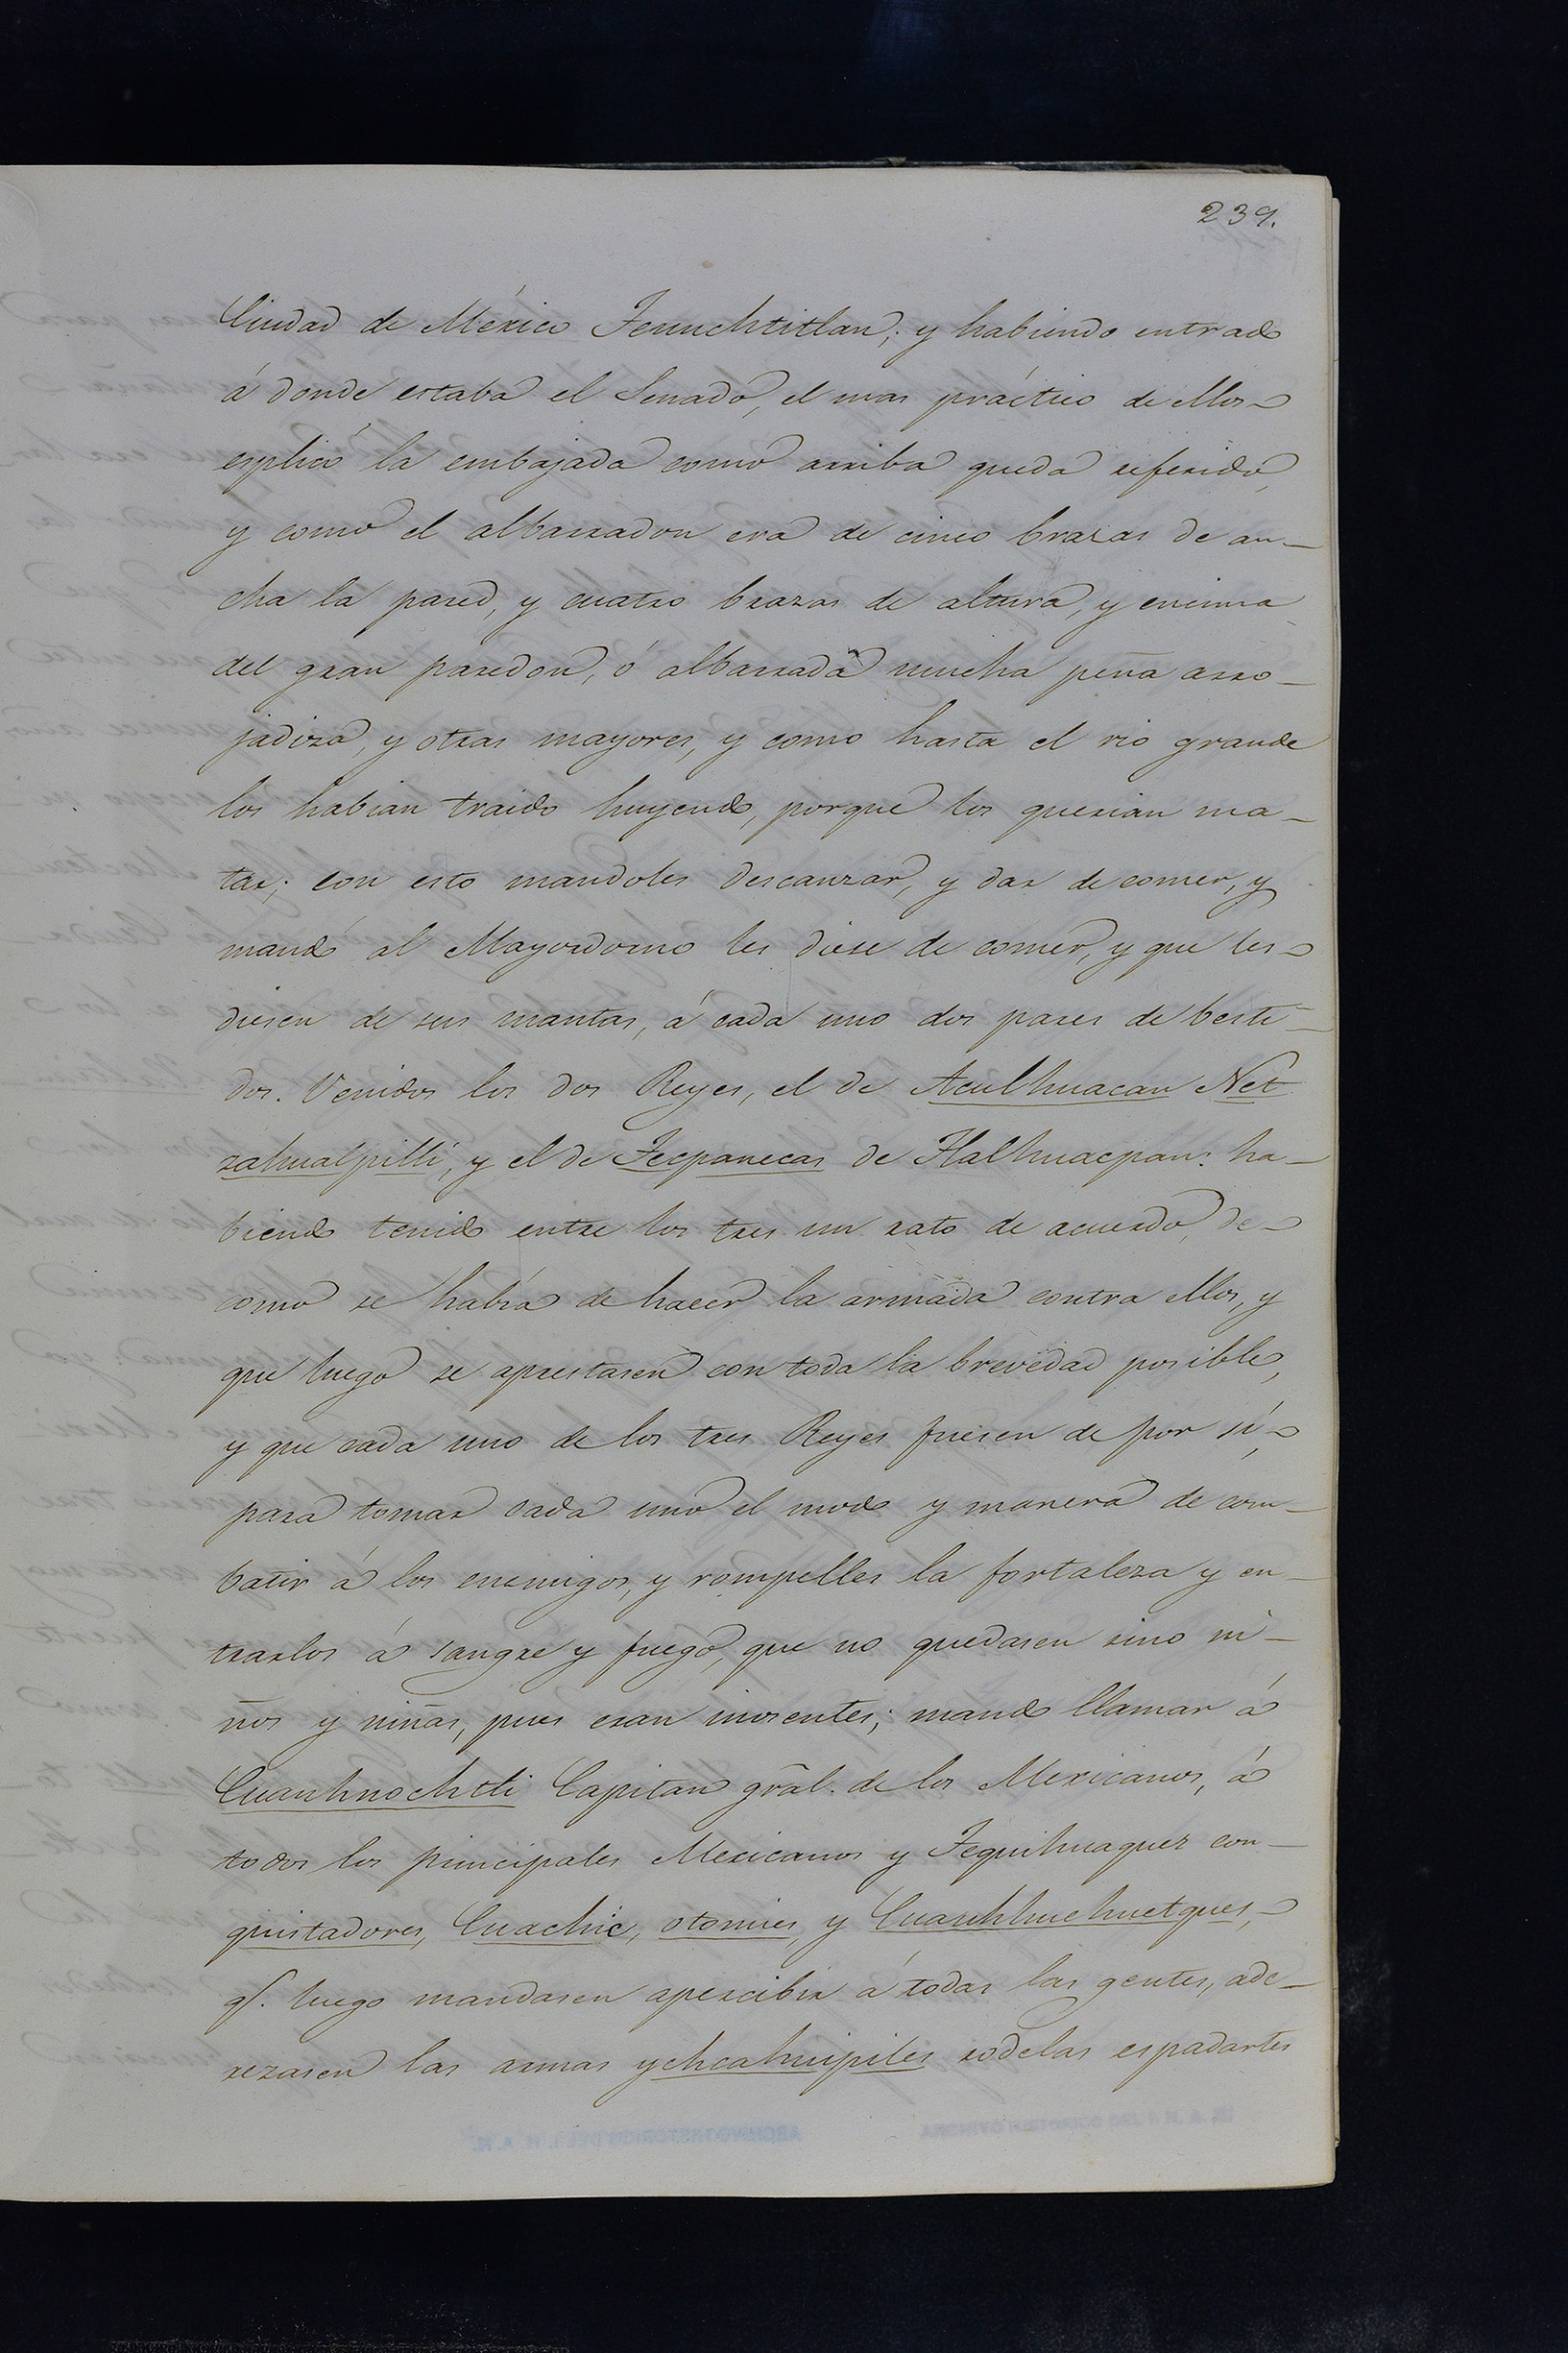 239.
Ciudad de México Tenuchtitlan; y habiendo entrado
á donde estaba el Senado, el mas práctico de ellos
esplicó la embajada como arriba queda referido,
y como el albarradon era de cinco brazas de an-
cha la pared, y cuatro brazas de altura, y encima
del gran paredon, ó albarrada mucha peña arro-
jadiza, y otras mayores, y como hasta el rio grande
los habian traido huyendo, porque los querian ma-
tar; con esto mandoles descanzar, y dar de comer, y
mandó al Mayordomo les diese de comer, y que les
diesen de sus mantas, á cada uno dos pares de besti-
dos. Venidos los dos Reyes, el de Aculhuacan Net
zahualpilli, y el de Tecpanecas de Tlalhuacpan: ha-
biendo tenido entre los tres un rato de acuerdo, de
como se habia de hacer la armada contra ellos, y
que luego se aprestasen con toda la brevedad posible,
y que cada uno de los tres Reyes fuesen de por sí,
para tomar cada uno el modo y manera de com-
batir á los enemigos, y rompelles la fortaleza y en-
trarlos á sangre y fuego, que no quedasen sino ni-
ños y niñas, pues eran inosentes; mando llamar á
Cuauhnochtli Capitan grāl. de los Mexicanos, á
todos los principales Mexicanos y Tequihuaques con-
quistadores, Cuachic, otomies, y Cuauhhuehuetques,
qͤ. luego mandasen apercibir á todas las gentes, ade-
rezasen las armas ychcahuipiles rodelas espadartes